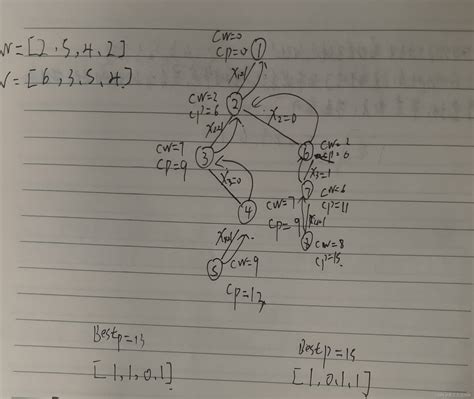 W=[2,5,4,2]
V=[6,3,5,4]
CW=0
CP=0
1
X1=1
CW=2
CP=6
2
X2=1
X2=0
CW=7
CP=9
3
X3=0
4
CW=7
CP=9
X4=1
5
CW=9
CP=13
6
CW=2
X3=1
7
CW=6
CP=11
X4=1
CW=8
CP=15
Bestp=13
[1,1,0,1]
Bestp=15
[1,0,1,1]